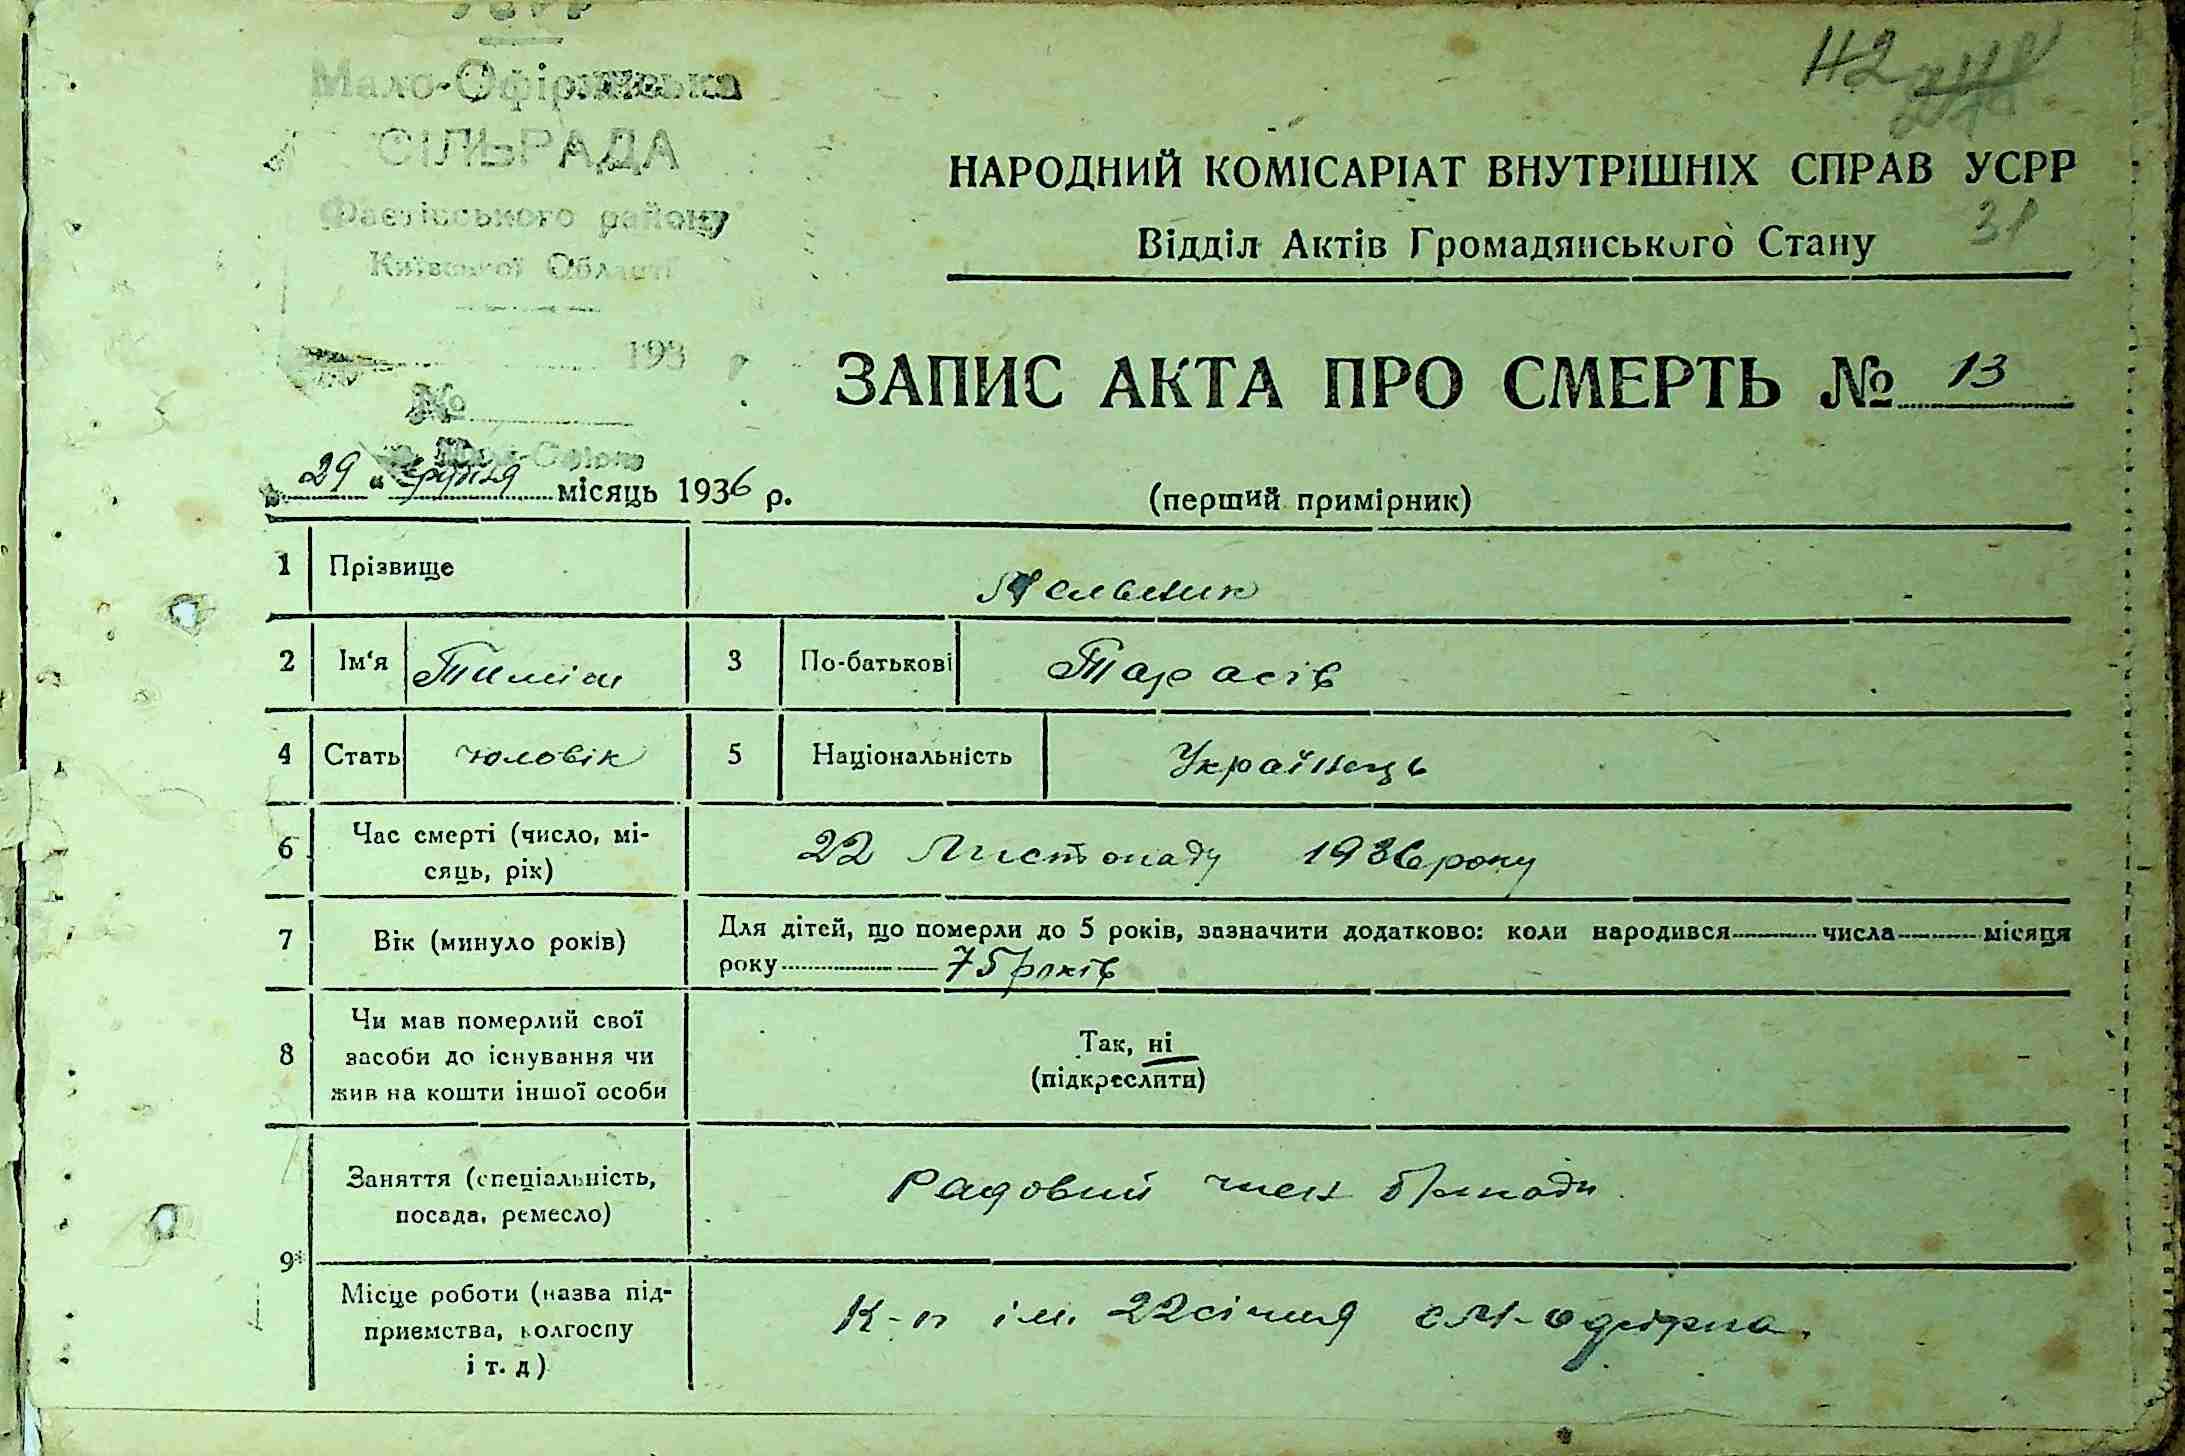 УСРР
Мало-Офірнянська
СІЛЬРАДА
Фастівського району
Київської Області
193 р
№
НАРОДНИЙ КОМІСАРІАТ ВНУТРІШНІХ СПРАВ УСРР
31
Відділ Актів Громадянського Стану
ЗАПИС АКТА ПРО СМЕРТЬ № 13
29 " грудня місяць 1936 р.
(перший примірник)
1 Прізвище Мельник
2 Ім'я Тиміш 3 По-батькові Тарасів
4 Стать чоловік 5 Національність Українець
6 Час смерті (число, мі-
сяць, рік) 22 Листопаду 1936 року
7 Вік (минуло років) Для дітей, що померли до 5 років, зазначити додатково: коли народився числа місяця
року 75 років
8 Чи мав померлий свої
засоби до існування чи
жив на кошти іншої особи
Так, ні
(підкреслити)
9 Заняття (спеціальність,
посада, ремесло) Радовий член бригади
Місце роботи (назва під-
приємства, колгоспу
і т. д) К-п ім. 22 січня с М-офірна.